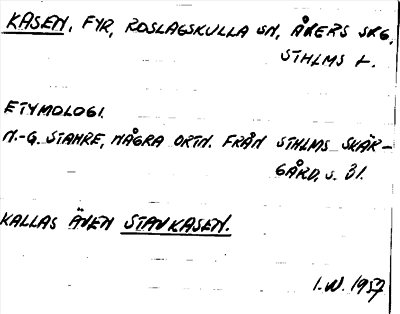 KASEN, FYR, ROSLAGSKULLA SN, ÅKERS SKG,
STHLMS L.
ETYMOLOGI.
N.-G. STAHRE, NÅGRA ORTN. FRÅN STHLMS SKÄR-
GÅRD, S. 31.
KALLAS ÄVEN STAVKASEN.
I.W. 1957